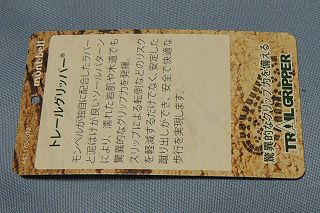 mont-bell
トレールグリッパー®
モンベルが独自に配合したラバー
と泥はけが良いソールパターン
により、濡れた岩肌や木道でも
驚異的なグリップ力を発揮。
スリップによる転倒などのリスク
を軽減するだけでなく、安定した
蹴り出しができ、安全で快適な
歩行を実現します。
驚異的なグリップ力を備える
TRAIL GRIPPER